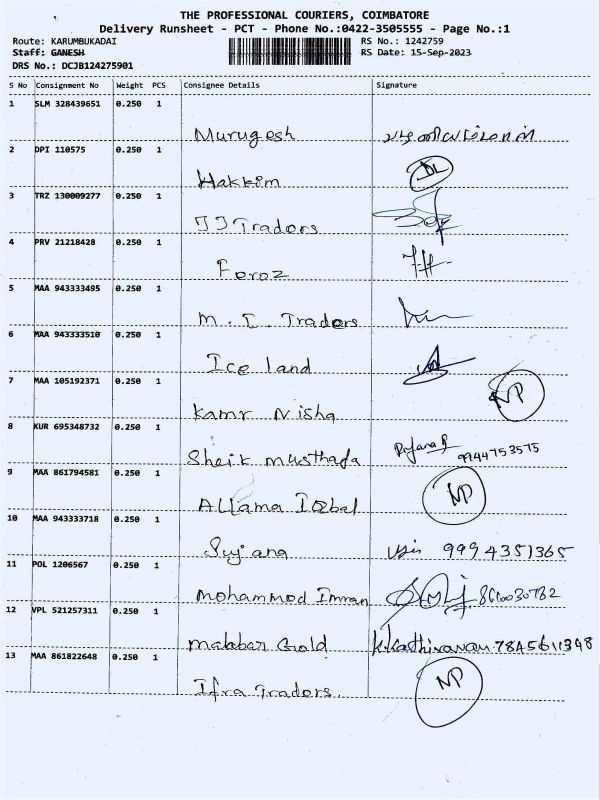 THE PROFESSIONAL COURIERS, COIMBATORE
Delivery Runsheet - PCT - Phone No.:0422-3505555 - Page No.:1
Route: KARUMBUKADAI RS No.: 1242759
Staff: GANESH RS Date: 15-Sep-2023
DRS No.: DCJB124275901
S No Consignment No Weight PCS Consignee Details Signature
1 SLM 328439651 0.250 1
Murugesh
2 DPI 110575 0.250 1
Hakkim
3 TRZ 130009277 0.250 1
JJ Traders
4 PRV 21218428 0.250 1
Feroz
5 MAA 943333495 0.250 1
M.I. Traders
6 MAA 943333510 0.250 1
Ice land
7 MAA 105192371 0.250 1 NP
Kamr Nisha
8 KUR 695348732 0.250 1
Sheik musthada 9944753575
9 MAA 861794581 0.250 1 NP
Allama Iqbal
10 MAA 943333718 0.250 1
Sujana 9994351365
11 POL 1206567 0.250 1
Mohammod Imran
12 VPL 521257311 0.250 1
Malabar Gold K.Kathiravan 7845611348
13 MAA 861822648 0.250 1 NP
Ifra Traders.